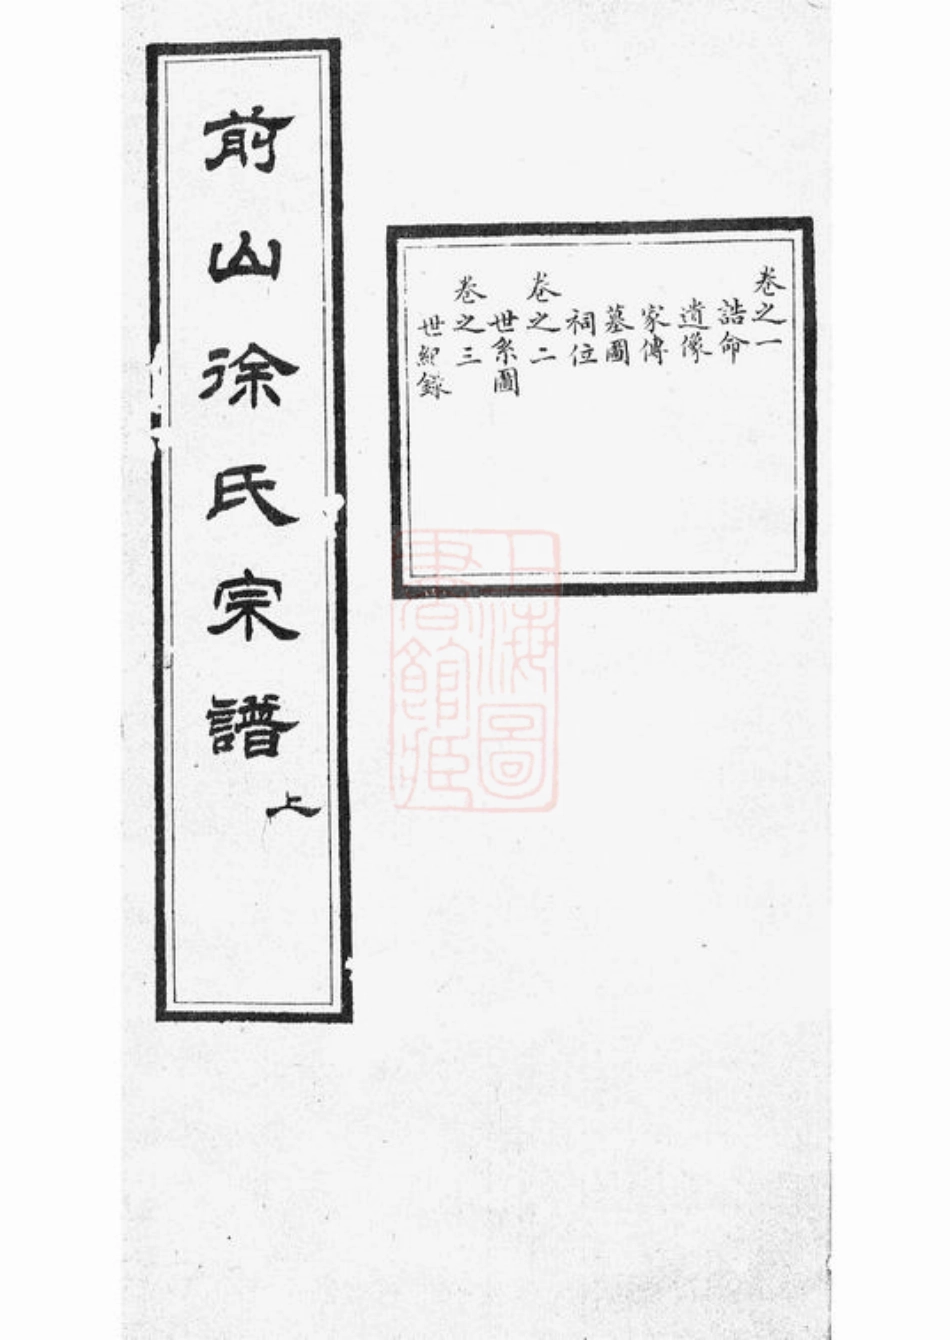 卷之一
誥命
遺像
家傳
墓圖
祠位
卷之二
世系圖
卷之三
世紀錄
前山徐氏宗譜
上
上海圖書館藏